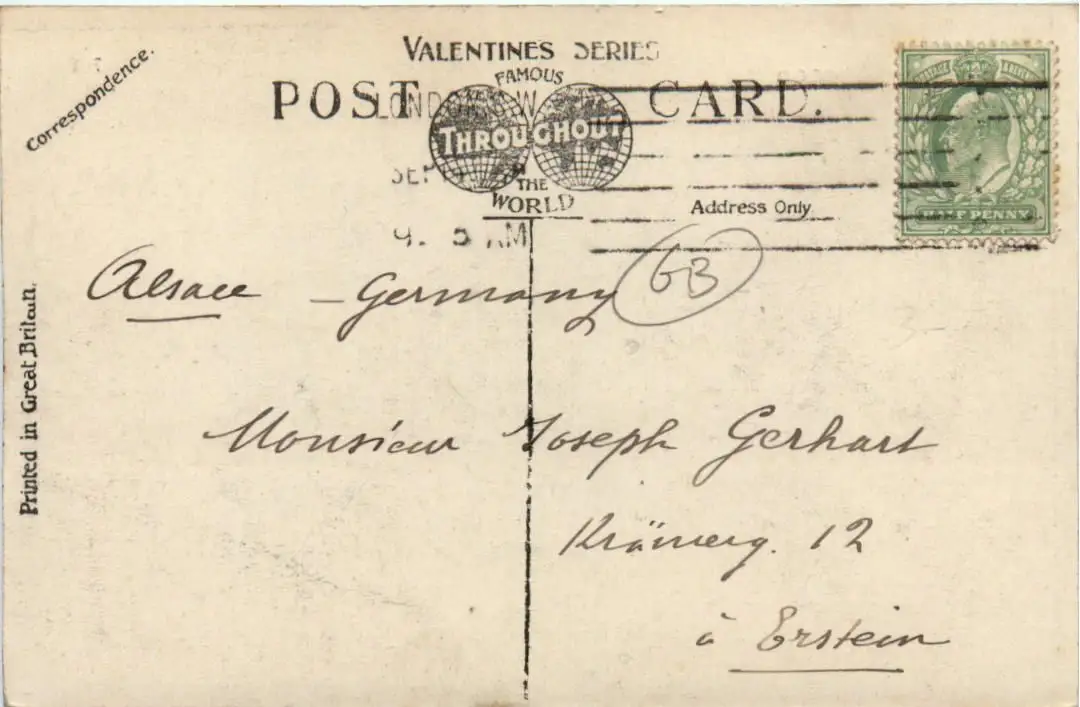 Correspondence.
VALENTINES SERIES
FAMOUS
POST CARD.
LONDON S.W.
THROUGHOUT
SEP
THE
WORLD
Address Only
POSTAGE & REVENUE
HALF PENNY
AM
Alsace – Germany
GB
Printed in Great Britain.
Monsieur Joseph Gerhart
Krämerg. 12
à Erstein